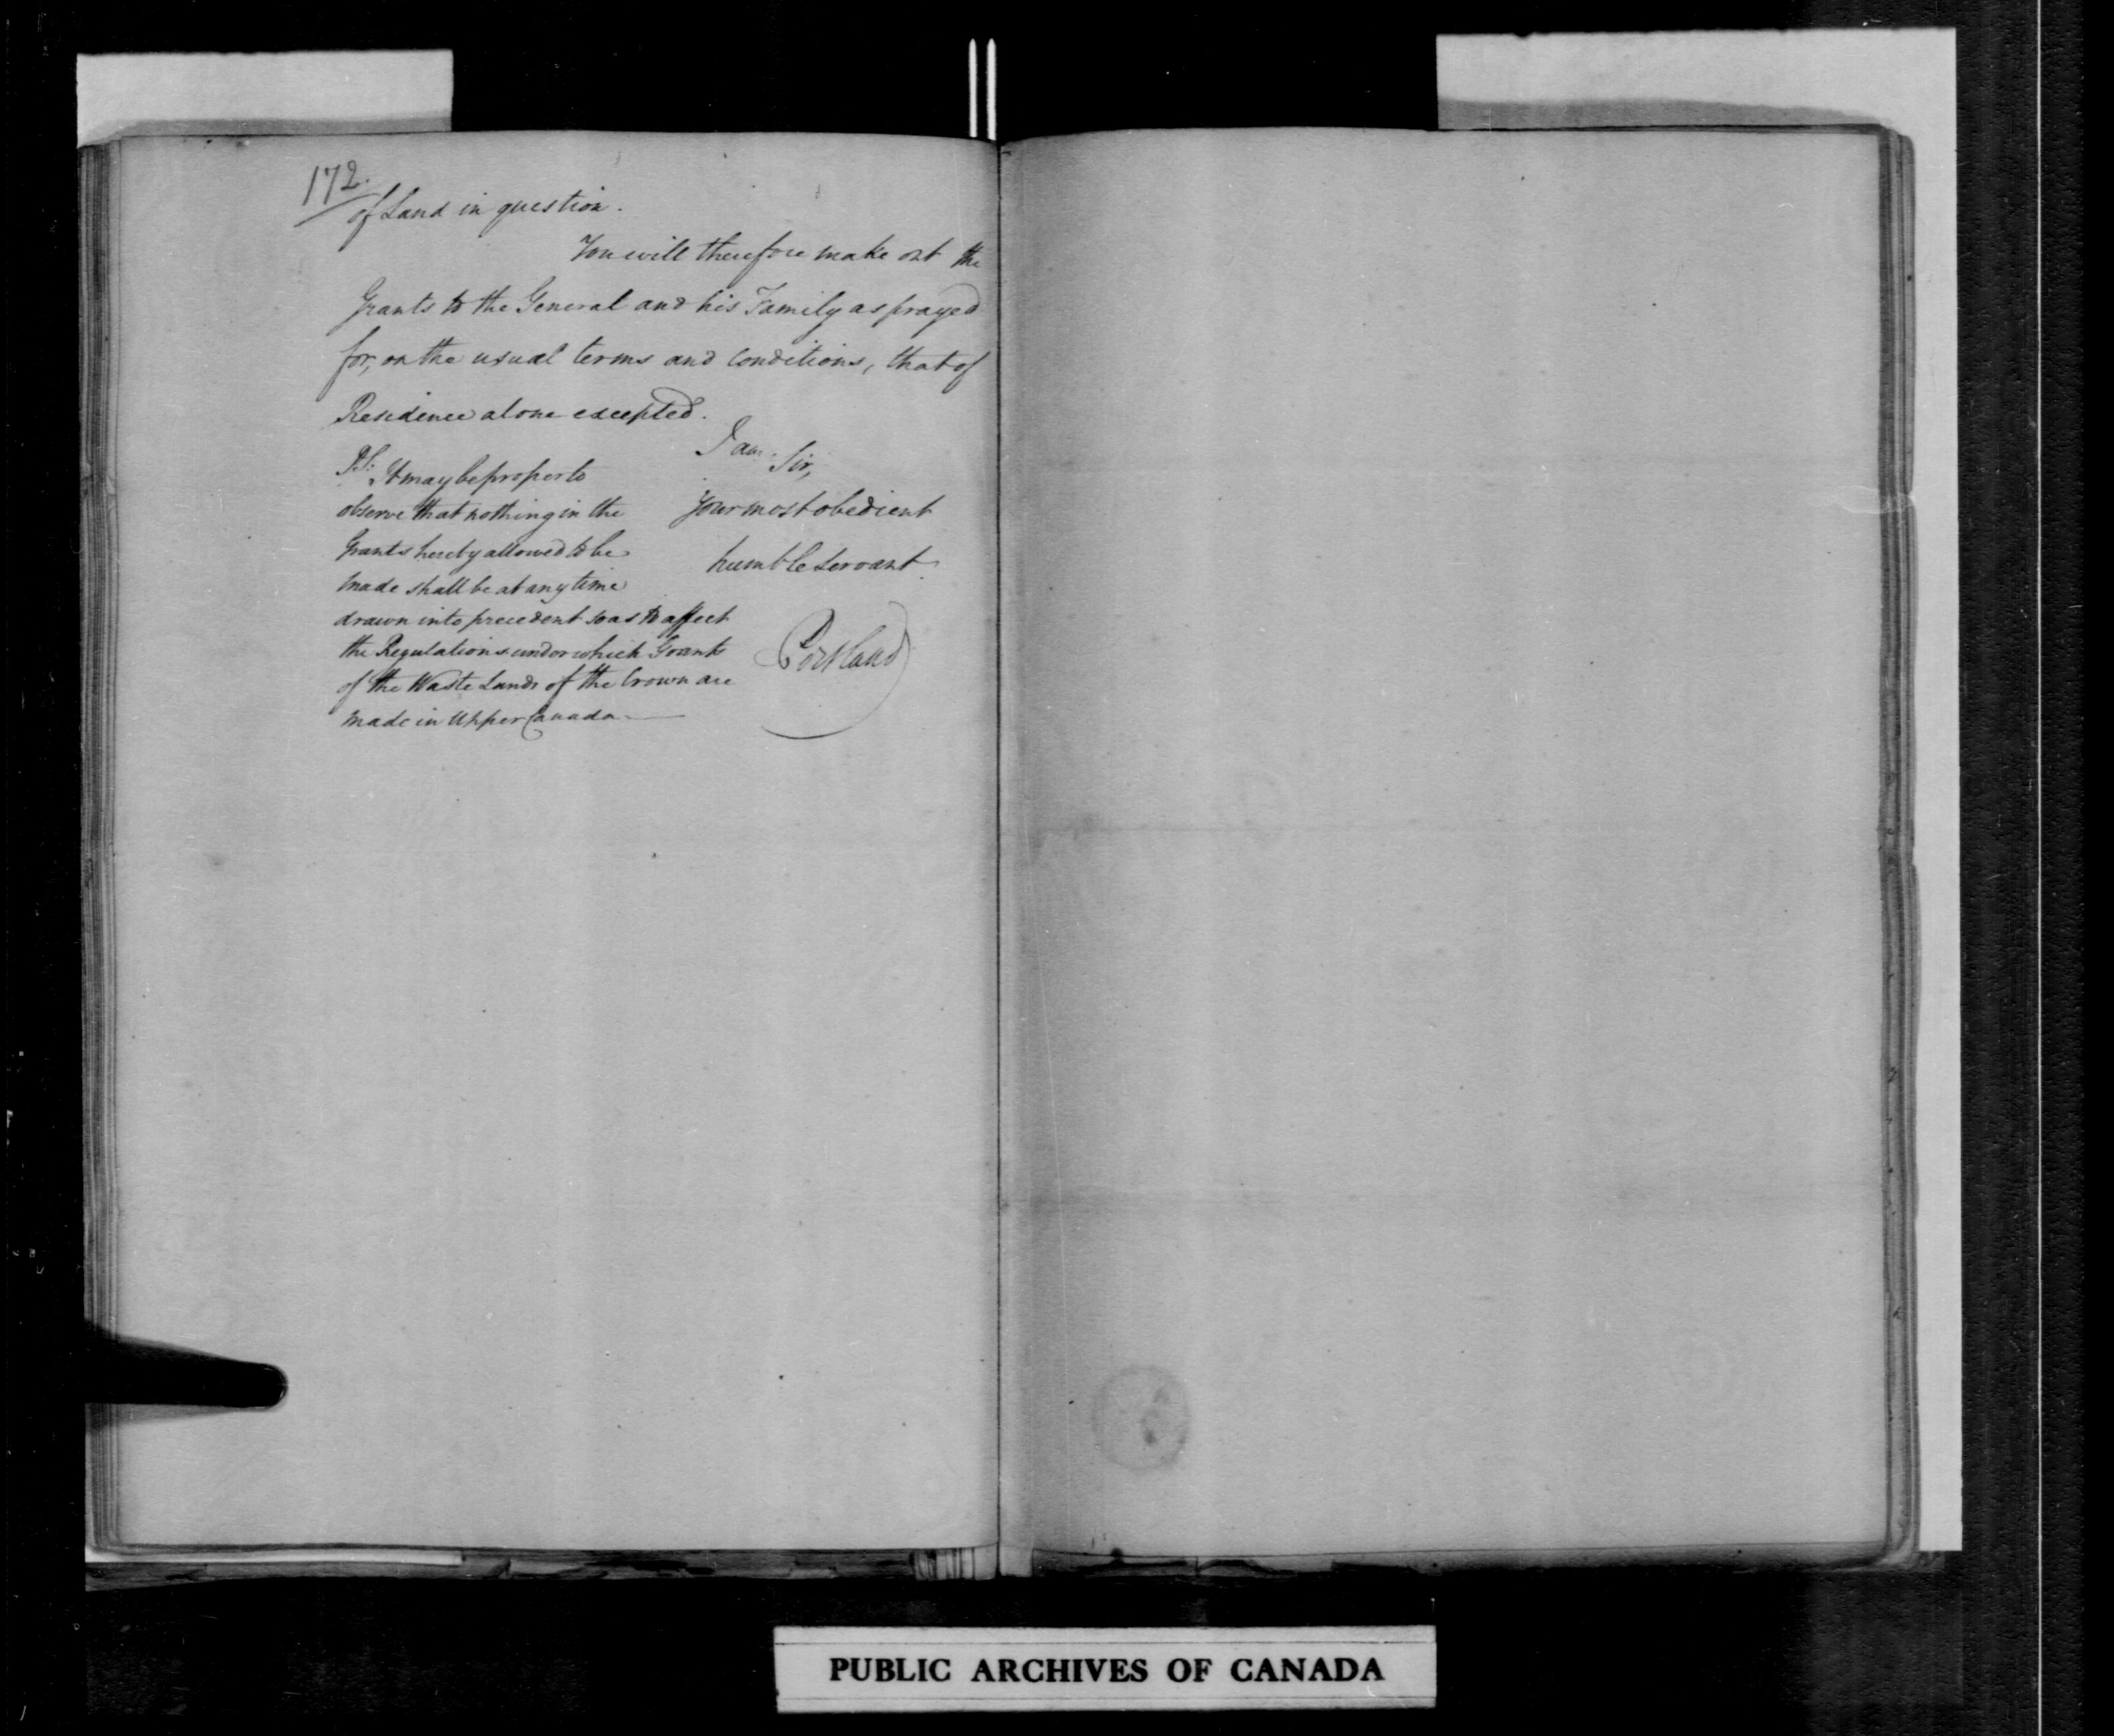 172.
of Land in question.
You will therefore make out the
Grants to the General and his Family as prayed
for, on the usual terms and Conditions, that of
Residence alone excepted.
I am Sir,
Your most obedient
humble Servant
Portland
P.S. It may be proper to
observe that nothing in the
Grants hereby allowed to be
made shall be at any time
drawn into precedent so as to affect
the Regulations under which Grants
of the Waste Lands of the Crown are
made in Upper Canada
PUBLIC ARCHIVES OF CANADA